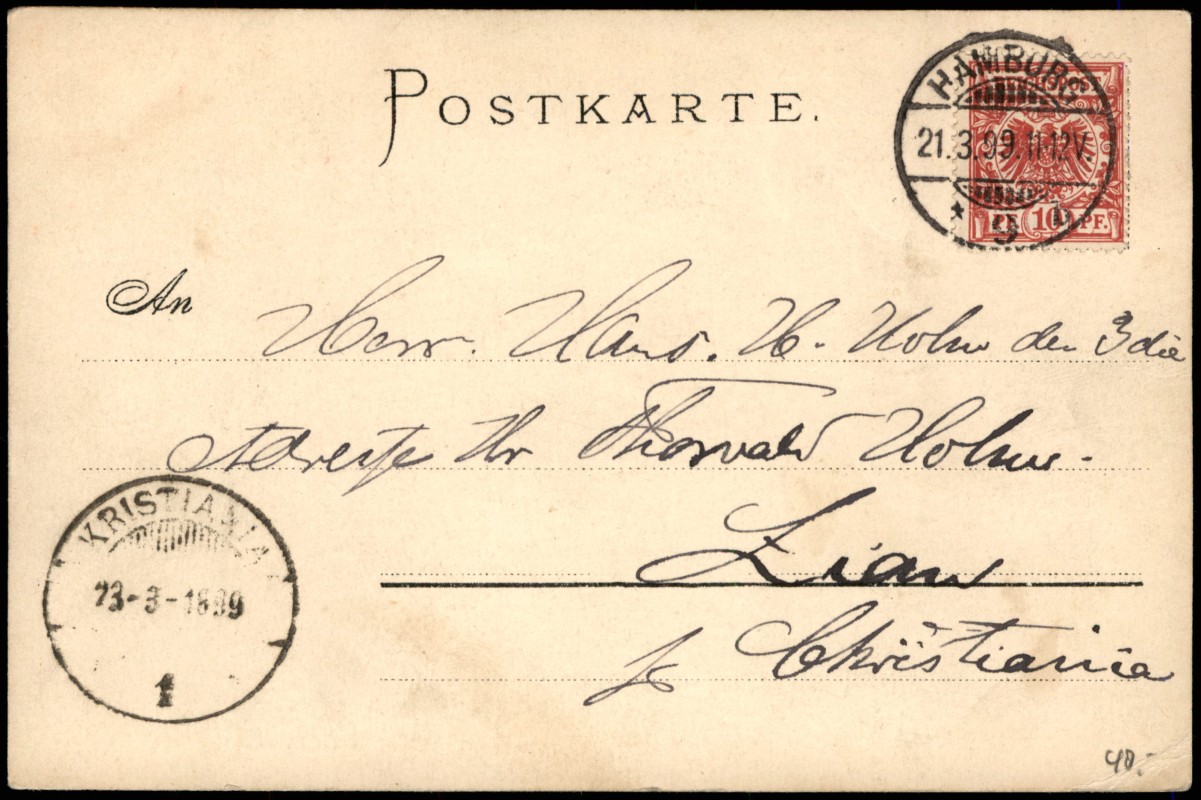 POSTKARTE.
HAMBURG
21.3.99.11-12V.
* 9
10 PF.
An Herr. Hans. H. Holm den 3die
Adresse Hr Thorvald Holm.
Lian
pr Christiania
KRISTIANIA
23-3-1899
1
40.-